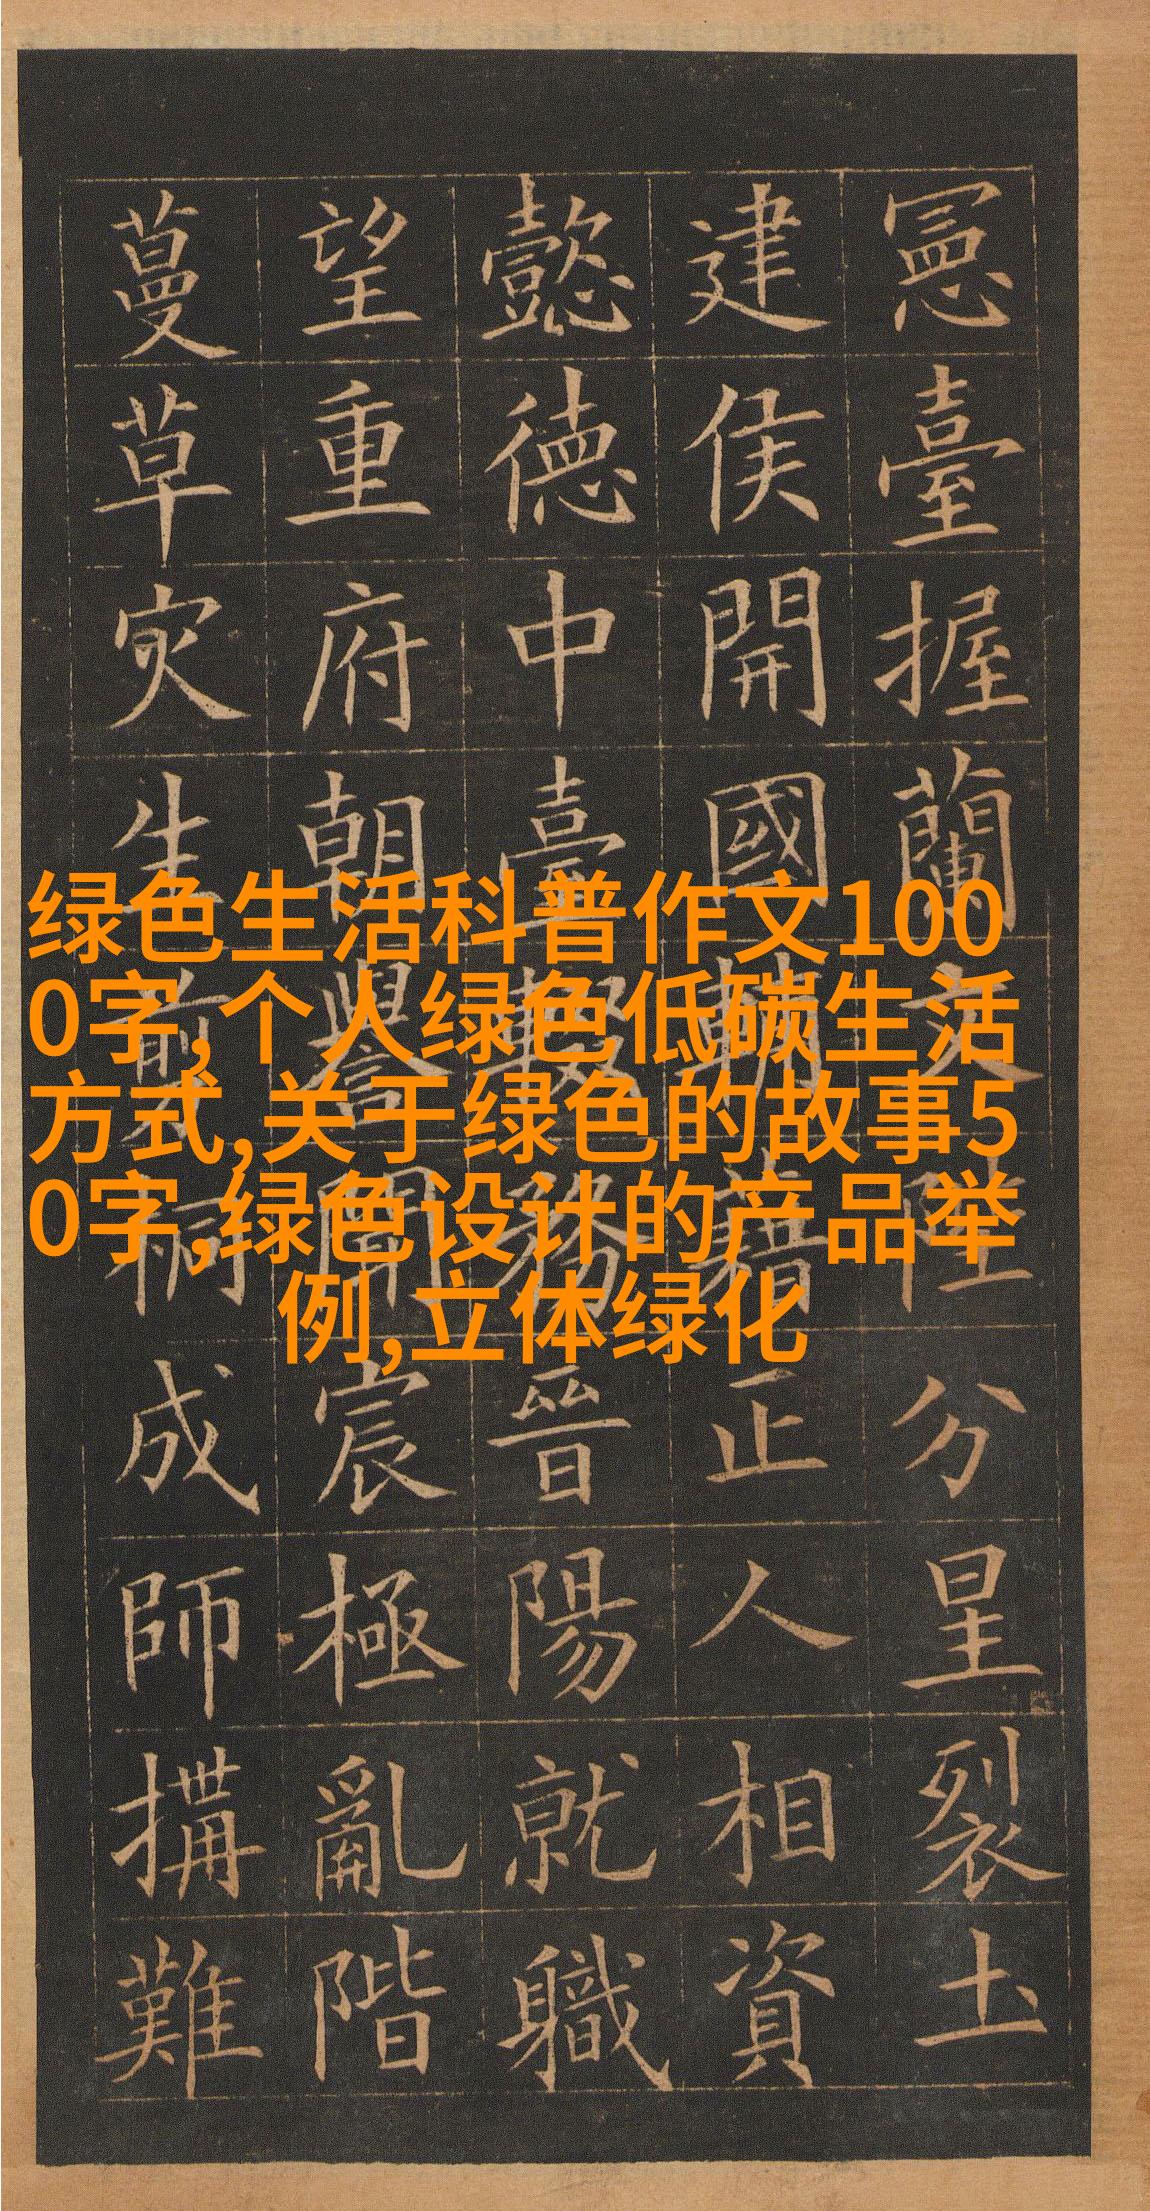 绿色生活科普作文100
0字,个人绿色低碳生活
方式,关于绿色的故事5
0字,绿色设计的产品举
例,立体绿化
憲臺握蘭文陛分星裂土
建侯開國藉正人相資
懿德中臺輟務晉陽就職
望重府朝譽聞宸極亂階
蔓草灾生剪桐成師搆難